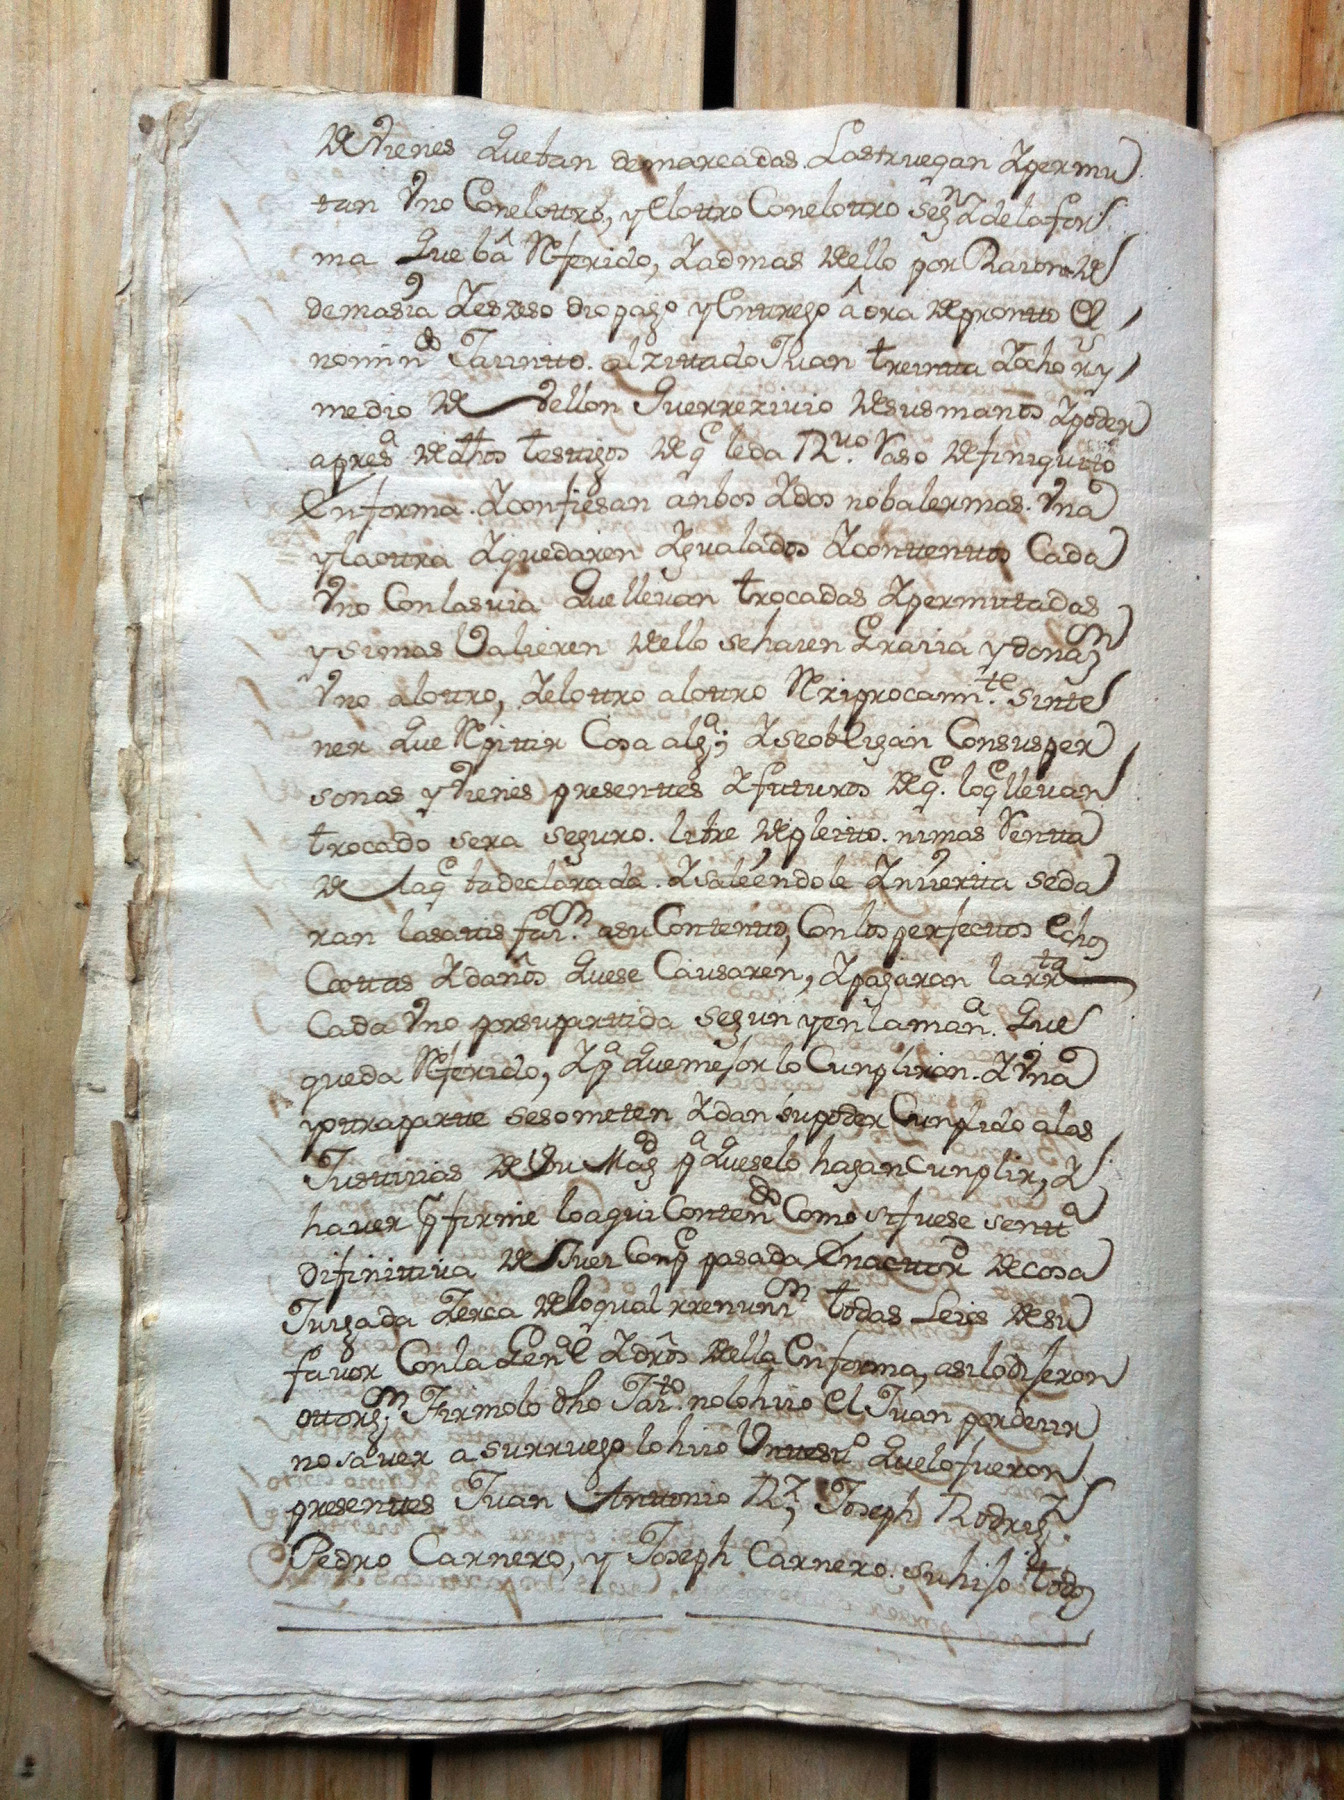 de vienes que ban demarcadas. Las truegan y permu
tan Vno Con el otro, y el otro Con el otro segn y de la for
ma que bâ Referido, y admas de llo por Razon de
demasia y esceso dio pagº y entregº âora de prontto el
nominado Jazintto. al zittado Juan treintta y ocho rs y
medio de vellon que rrezivio de sus manos y poder
a presª de dhos testigos de q le da Rvo Vaso de finiquitto
en forma. y confiesan anbos y dos no baler mas. Vna
y la otra y quedaren ygualados y conttenttos Cada
Vno Con la suia que llevan trocadas y permutadas
y si mas Valieren de llo se hazen Grazia y donazn
Vno al otro, y el otro al otro Reziprocamte. sin te
ner que Repittir Cosa algª; y se obligan Con sus per
sonas y vienes presenttes y futuros de q. lo q llevan
trocado sera seguro. libre de pleitto. ni mas Rentta
de la q ba declarada. y saliendole Ynzierta se da
ran la sattisfazn. a su Contentto, Con los perfecttos echos
Costtas y daños que se Causaren, y pagaran la rrta
Cada Vno por su parttida segun y en la manª. que
queda Referido, y pª que mejor lo Cunpliran. y Vna
y otra partte se someten y dan su poder Cunplido a las
Justtizias de Su Magd pª que se lo hagan Cunplir, y
haver p firme lo aqui Contendo Como si fuese senttª
difinittiva de Juez Conpe pasada en acttord de cosa
Juzgada Zerca de lo qual rrenunzn todas Leis de su
favor Con la Genel y dros de lla en forma, asi lo dijeron
ottorgn; y firmolo dho Jazto. no lo hizo el Juan por dezir
no saver a su rruego lo hizo Vn testº que lo fueron
presenttes Juan Anttonio Rz, Joseph Rodrigz.
Pedro Carnero, y Joseph Carnero. su hijo todos